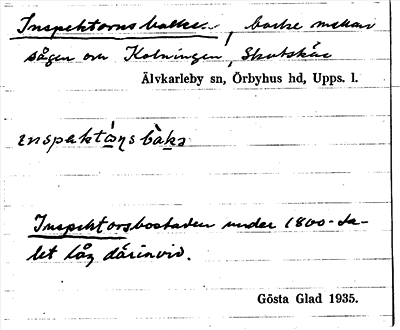 Inspektorns backe, backe mellan
sågen och Kolningen, Skutskär
Älvkarleby sn, Örbyhus hd, Upps. l.
inspektòṇs bàkə
Inspektorsbostaden under 1800-ta-
let låg därinvid.
Gösta Glad 1935.